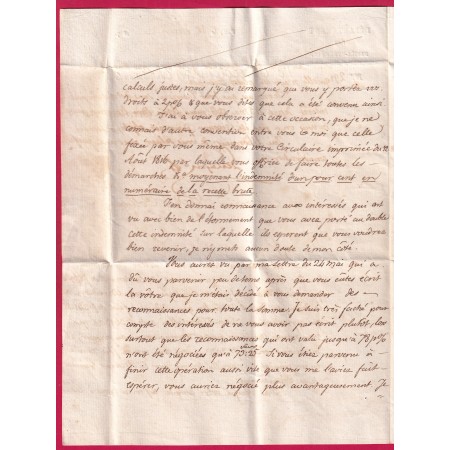 calculs justes, mais j'y ai remarqué que vous y portez vos
droits à 2 p% & que vous dites que cela a été convenu ainsi
J'ai à vous observer à cette occasion, que je ne
connait d'autre convention entre vous & moi que celle
par vous même dans votre Circulaire imprimée du 22
Août 1816 par laquelle vous offrez de faire toutes les
démarches &ª moyenant l'indemnité d'un pour cent en
numéraire de la recette brute.
J'en donnai connaissance aux intéressés qui ont
vu avec bien de l'étonnement que vous avez porté au double
cette indemnité sur laquelle ils espèrent que vous voudrez
bien revenir, je n'ajoute aucun doute de mon côté.
Vous aurez vu par ma lettre du 24 Mai qui a
dû vous parvenir peu de tems après que vous eûtes écrit
la vôtre que je m'étais décidé à vous demander des
reconnaissances pour toute la somme. Je suis très faché pour
compte des intéressés de ne vous avoir pas écrit plutôt,
surtout que les reconnaissances qui ont valu jusqu'à 78 p%
n'ont été négociées qu'à 75:25. Si vous étiez parvenu à
finir cette opération aussi vite que vous me l'aviez fait
espérer, vous auriez négocié plus avantageusement. Je